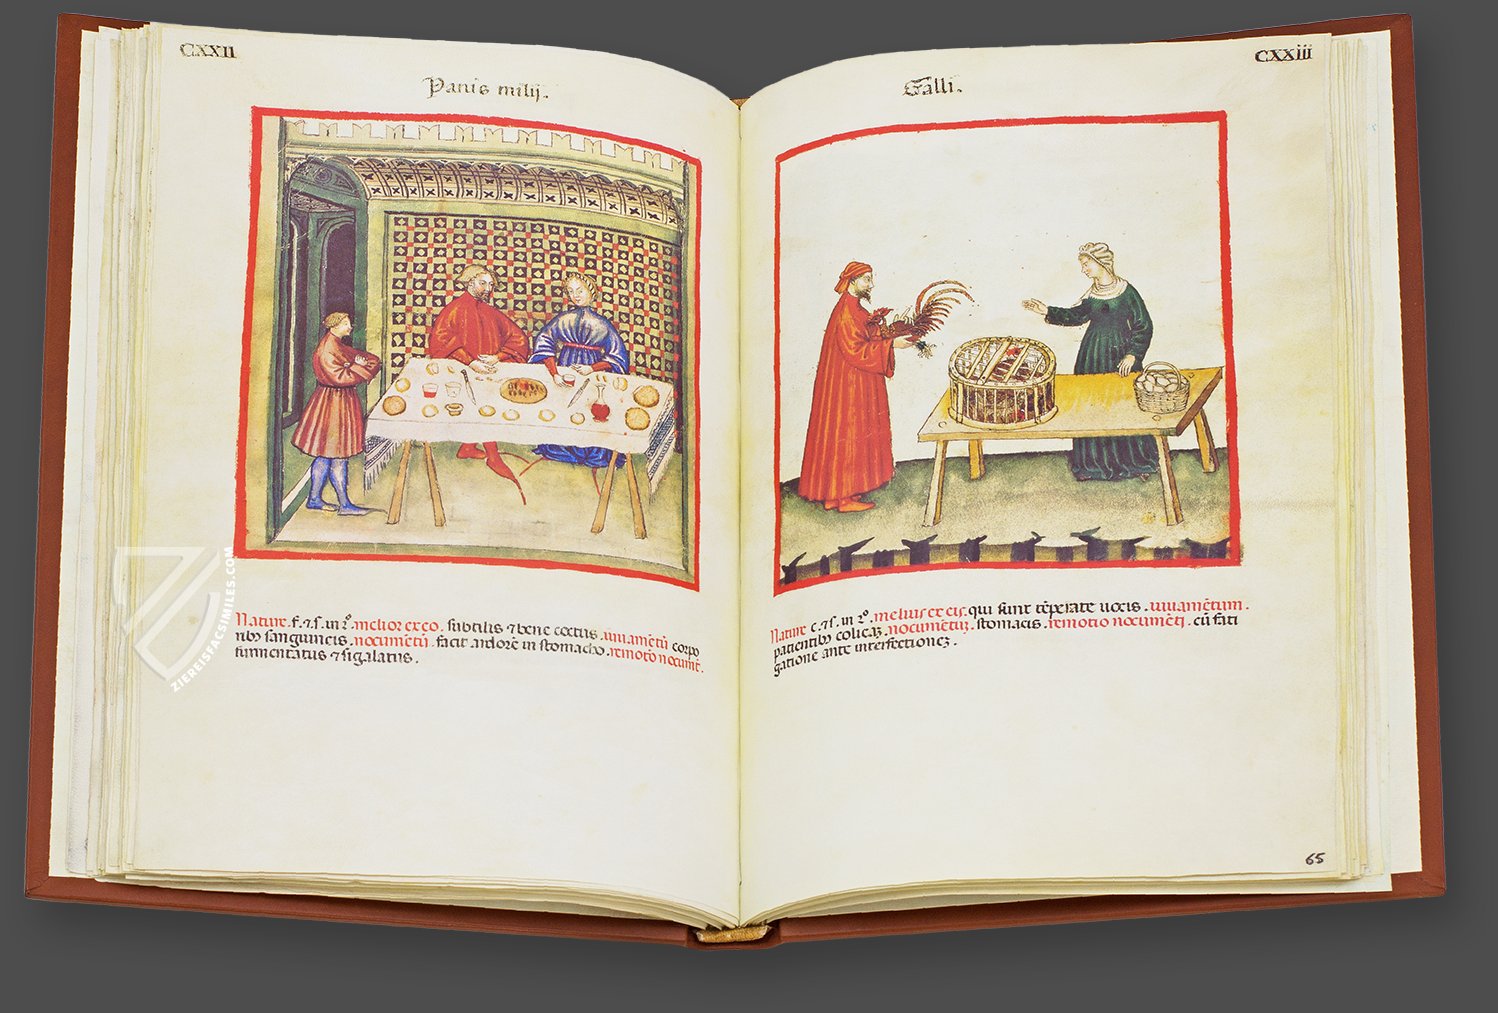 CXXII
Panis milij.
Nature. f. ⁊ s. in 2°. melior ex eo. subtilis ⁊ bene coctus. iuuamētū corpo
ribꝫ sanguineis. nocumētū. facit ardorē in stomacho. remotō nocumēt.
furmentatus ⁊ sigalatus.
CXXiii
Galli.
Nature c. ⁊ s. in 2°. melius ex eis. qui sunt tēperate uocis. iuuamētum.
patientibꝫ colicaꝫ. nocumētuꝫ. stomacis. remotio nocumēti. cū fati
gatione ante interfectioneꝫ.
65
ZIEREISFACSIMILES.COM